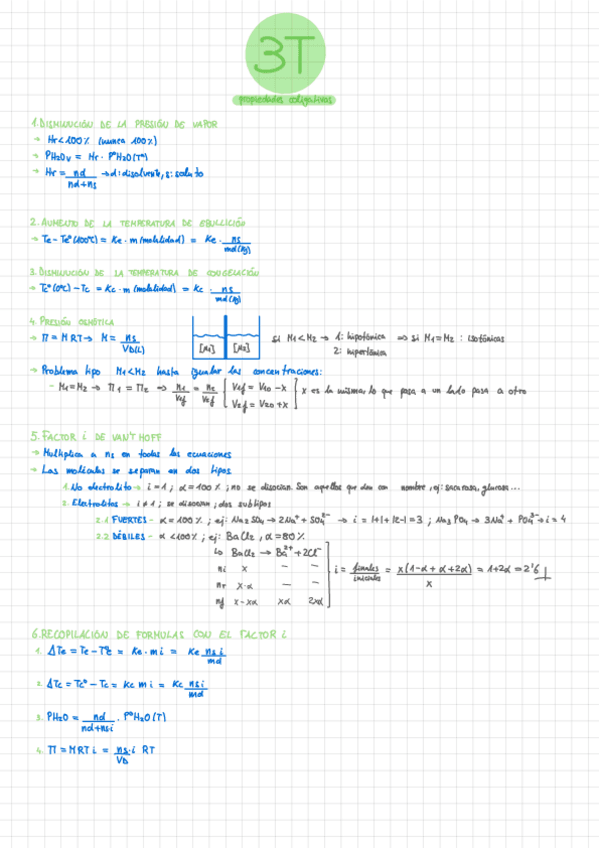 3T
propiedades coligativas
1. DISMINUCIÓN DE LA PRESIÓN DE VAPOR
→ Hr<100% (nunca 100%)
→ PH2Ov = Hr · P°H2O(T°)
→ Hr = nd / nd+ns → d: disolvente, s: soluto
2. AUMENTO DE LA TEMPERATURA DE EBULLICIÓN
→ Te - Te°(100°C) = Ke · m (molalidad) = Ke · ns / md(Kg)
3. DISMINUCIÓN DE LA TEMPERATURA DE CONGELACIÓN
→ Tc°(0°C) - Tc = Kc · m (molalidad) = Kc · ns / md(Kg)
4. PRESIÓN OSMÓTICA
→ Π = M R T → M = ns / VD(L) [M1] [M2] si M1<M2 → 1: hipotónica ⇒ si M1=M2 : isotónicas
2: hipertónica
→ Problema tipo M1<M2 hasta igualar las concentraciones:
- M1=M2 → Π1 = Π2 ⇒ n1 / V1f = n2 / V2f [ V1f = V10 - x
V2f = V20 + x ] x es la misma: lo que pasa a un lado pasa a otro
5. FACTOR i DE VAN'T HOFF
→ Multiplica a ns en todas las ecuaciones
→ Las moléculas se separan en dos tipos
1. No electrolito → i=1 ; α=100% ; no se disocian. Son aquellos que dan con nombre, ej: sacarosa, glucosa...
2. Electrolitos → i≠1 ; se disocian ; dos subtipos
2.1 FUERTES - α=100% ; ej: Na2SO4 → 2Na⁺ + SO4²⁻ → i=1+1+|2-1=3 ; Na3PO4 → 3Na⁺ + PO4³⁻ → i=4
2.2 DÉBILES - α<100% ; ej: BaCl2, α=80%
↳ BaCl2 → Ba²⁺ + 2Cl⁻
ni x — —
nr x·α — —
nf x-xα xα 2xα
i = finales / iniciales = x(1-α+α+2α) / x = 1+2α = 2'6
6. RECOPILACIÓN DE FORMULAS CON EL FACTOR i
1. ΔTe = Te - T°e = Ke · m i = Ke ns i / md
2. ΔTc = Tc° - Tc = Kc m i = Kc ns i / md
3. PH2O = nd / nd+nsi · P°H2O(T)
4. Π = M R T i = ns·i / VD RT